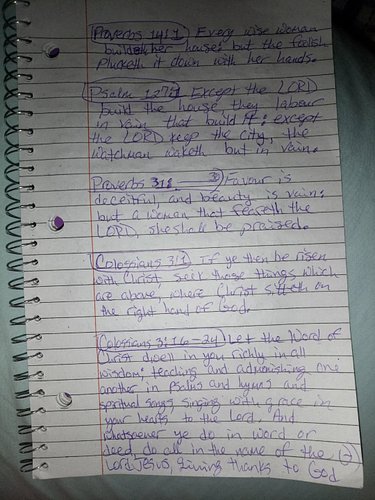 Proverbs 14:1 Every wise woman
buildeth her house: but the foolish
plucketh it down with her hands.
Psalm 127:1 Except the LORD
build the house, they labour
in vain that build it: except
the LORD keep the city, the
watchman waketh but in vain.
Proverbs 31: 30 Favour is
deceitful, and beauty is vain:
but a woman that feareth the
LORD, she shall be praised.
Colossians 3:1 If ye then be risen
with Christ, seek those things which
are above, where Christ sitteth on
the right hand of God.
Colossians 3:16-24 Let the Word of
Christ dwell in you richly in all
wisdom: teaching and admonishing one
another in psalms and hymns and
spiritual songs, singing with grace in
your hearts to the Lord. And
whatsoever ye do in word or
deed, do all in the name of the
Lord Jesus, giving thanks to God